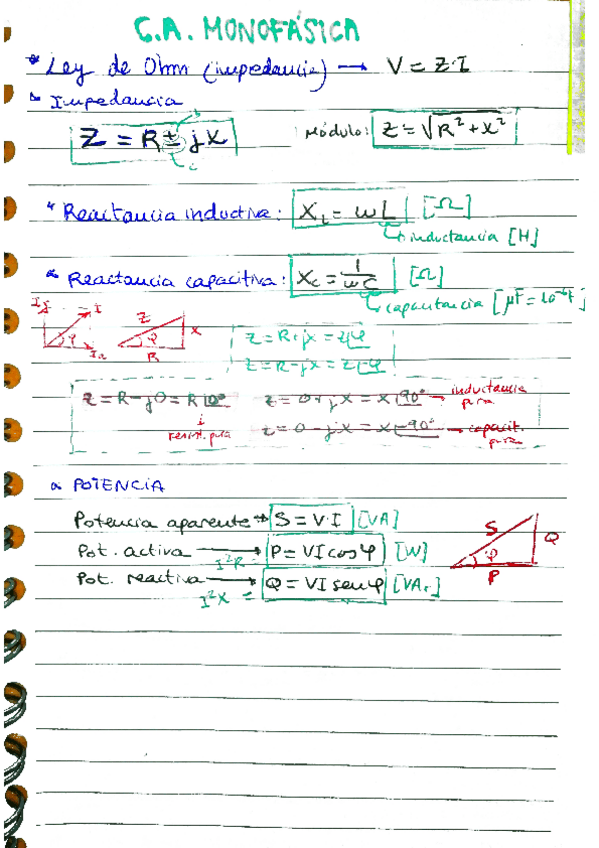 C.A. MONOFÁSICA
* Ley de Ohm (impedancia) → V = Z·I
* Impedancia
Z = R ± jX   Módulo: Z = √R²+X²
L
C
* Reactancia inductiva: X_L = ωL [Ω]
↳ inductancia [H]
* Reactancia capacitiva: X_C = 1/ωC [Ω]
↳ capacitancia [μF = 10⁻⁶F]
I
Z X
φ φ R
Z = R+jX = Z∠φ
Z = R-jX = Z∠-φ
Z = R-j0 = R∠0°   Z = 0+jX = X∠90° → inductancia pura
↓ resist. pura   Z = 0-jX = X∠-90° → capacit. pura
* POTENCIA
Potencia aparente → S = V·I [VA]
Pot. activa → P = VI cosφ [W]
I²R =
Pot. reactiva → Q = VI senφ [VAr]
I²X =
S Q
φ
P